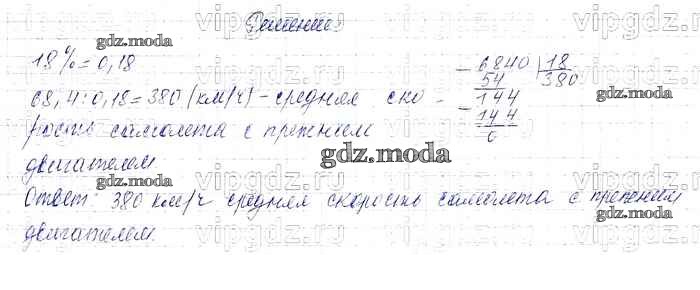 Решение:
18% = 0,18
68,4:0,18=380 (км/ч) - средняя ско-
рость самолета с прежним
двигателем
Ответ: 380 км/ч средняя скорость самолета с прежним
двигателем.
- 6840 | 18
54 | 380
- 144
144
0
gdz.moda
gdz.moda
gdz.moda
gdz.moda
gdz.moda
vipgdz.ru
vipgdz.ru
vipgdz.ru
vipgdz.ru